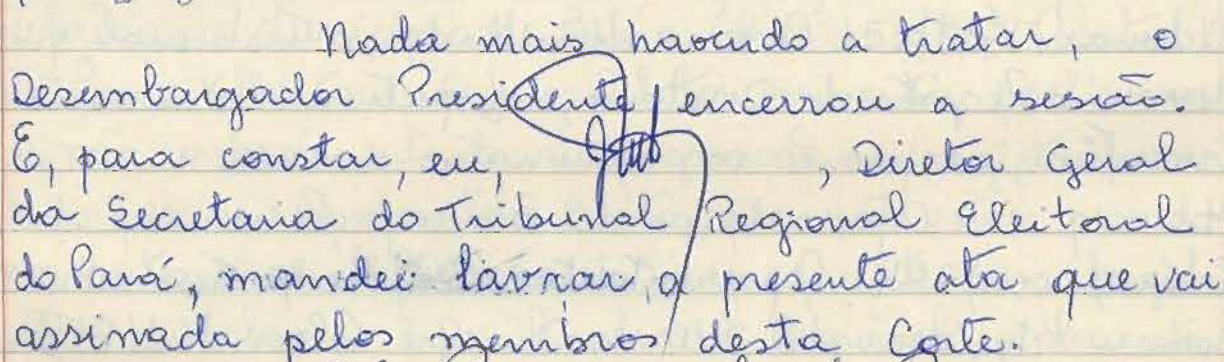 Nada mais havendo a tratar, o
Desembargador Presidente encerrou a sessão.
E, para constar, eu, , Diretor Geral
da Secretaria do Tribunal Regional Eleitoral
do Pará, mandei lavrar a presente ata que vai
assinada pelos membros desta Corte.